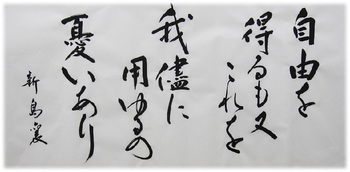 自由を
得るも又
これを
我儘に
用ゆるの
憂いあり
新島襄